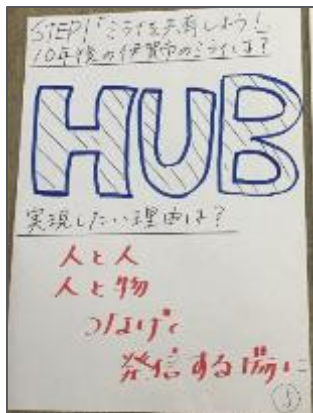 STEP1 ミライを共有しよう!
10年後の伊賀市のミライは?
HUB
実現したい理由は?
人と人
人と物
つなげて
発信する場に
5